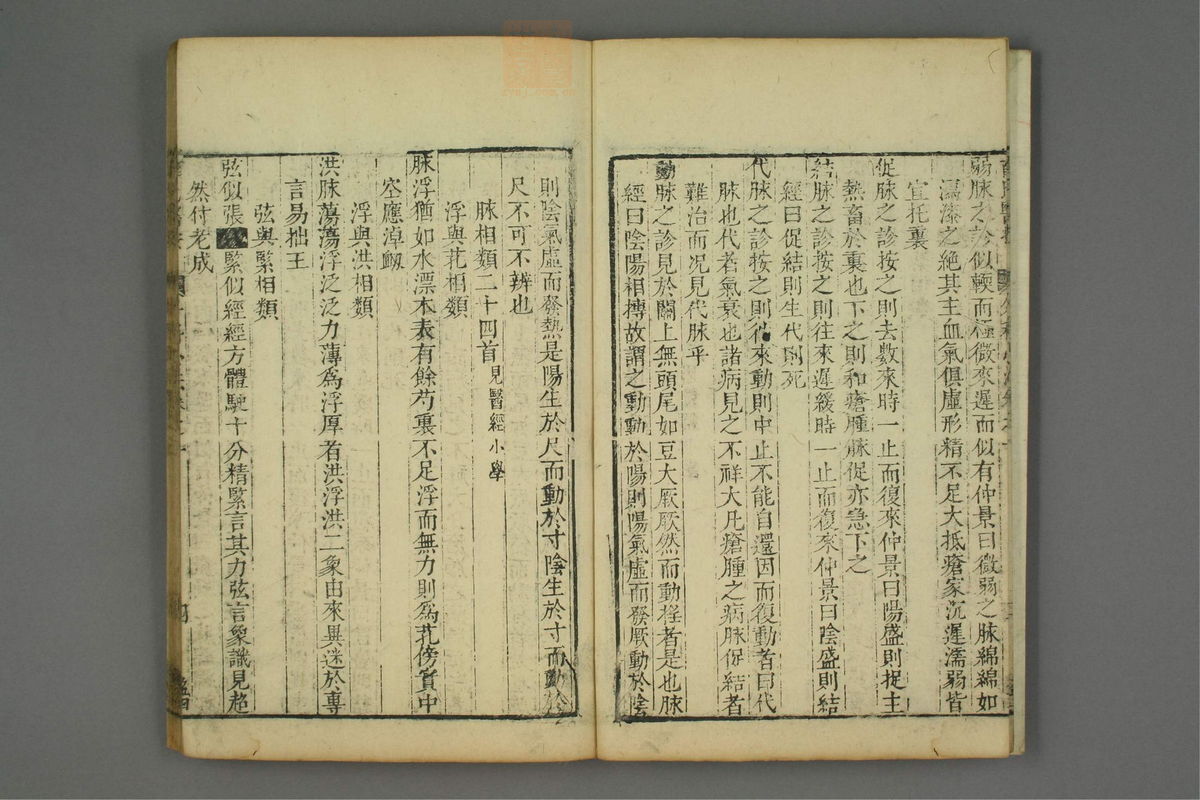 弱脉之診似軟而極微來遲而似有仲景曰微弱之脉綿綿如
瀉漆之絶其主血氣俱虛形精不足大抵瘡家沉遲濡弱皆
宜托裏
促脉之診按之則去數來時一止而復來仲景曰陽盛則捉主
熱畜於裏也下之則和瘡腫脉促亦急下之
結脉之診按之則往來遲緩時一止而復來仲景曰陰盛則結
經曰促結則生代則死
代脉之診按之則徃來動則中止不能自還因而復動者曰代
脉也代者氣衰也諸病見之不祥大凡瘡腫之病脉促結者
難治而况見代脉乎
動脉之診見於關上無頭尾如豆大厥厥然而動揺者是也脉
經曰陰陽相摶故謂之動動於陽則陽氣虛而發厥動於陰
則陰氣虛而發熱是陽生於尺而動於寸陰生於寸而動於
尺不可不辨也
脉相類二十四首見醫經小學
浮與芤相類
脉浮猶如水漂木表有餘芍裏不足浮而無力則爲芤傍實中
空應淖
浮與洪相類
洪脉蕩蕩浮泛泛力薄爲浮厚者洪浮洪二象由來異迷於專
言易拙王
弦與緊相類
弦似張緊似經經方體駛十分精緊言其力弦言象識見超
然付老成